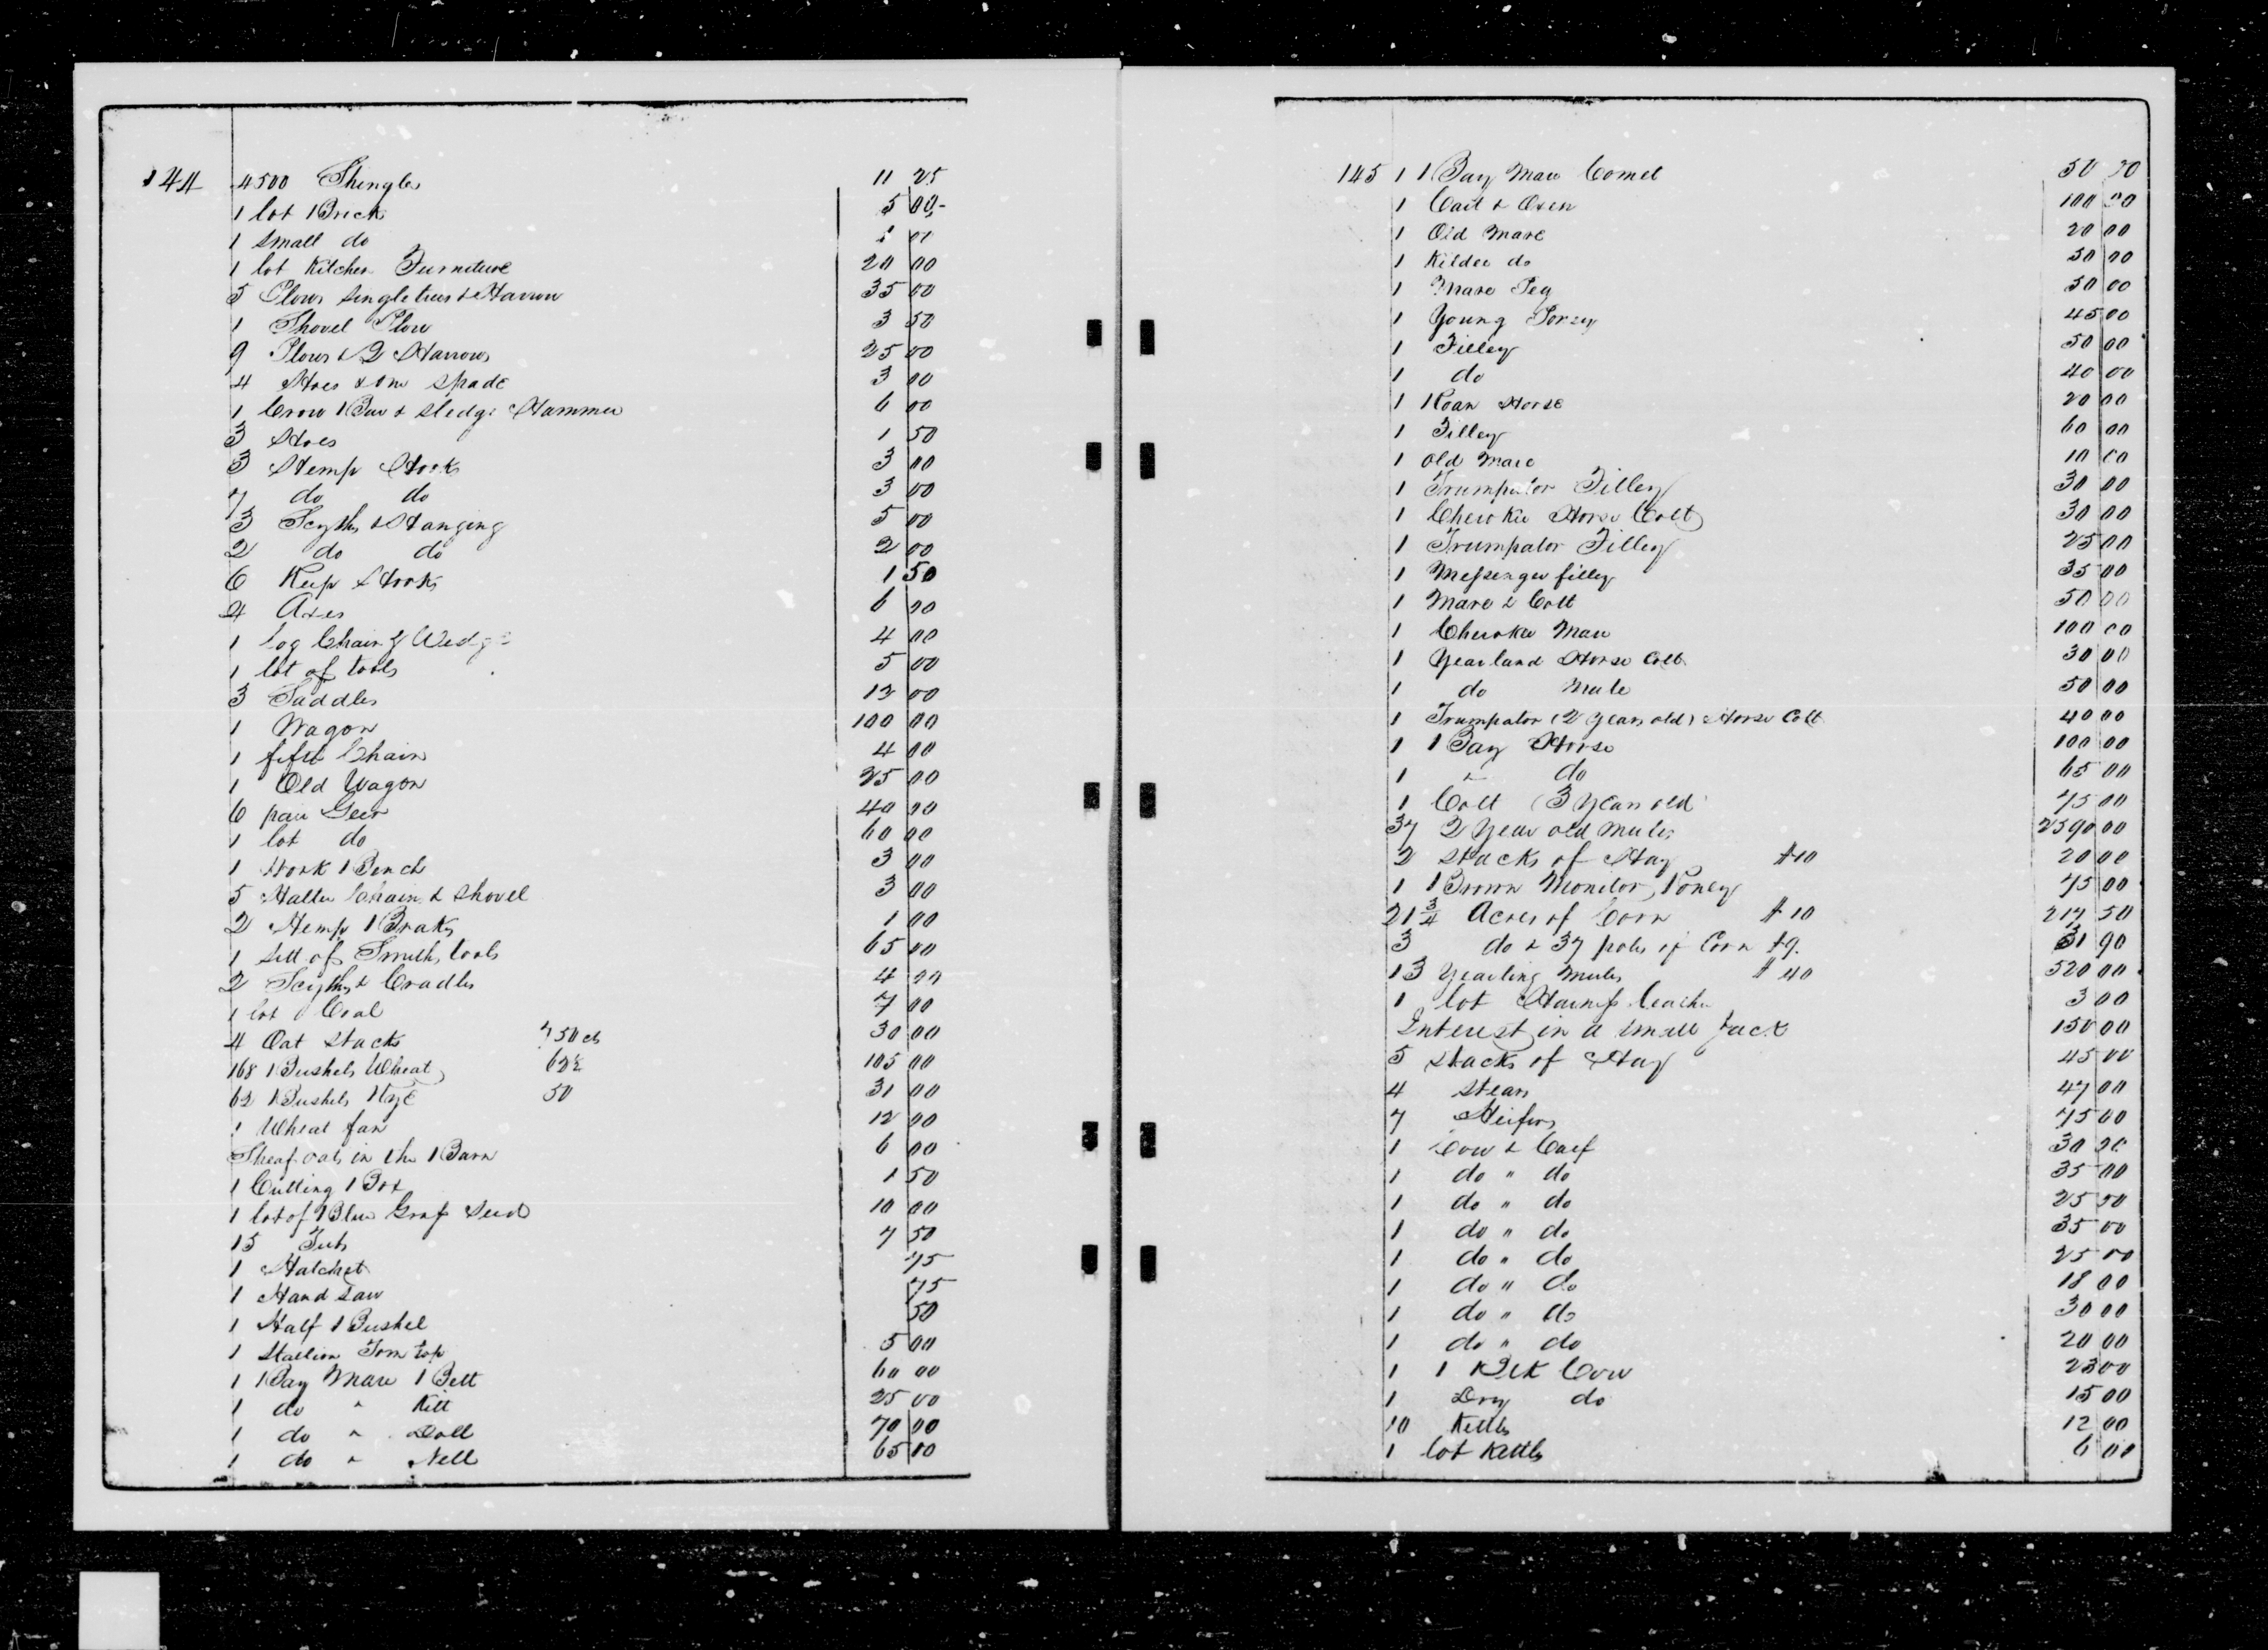 144 4500 Shingles 11 25
1 lot Brick 5 00
1 small do 00
1 lot Kitchen Furniture 20 00
5 Plows singletrees & Harrow 35 00
1 Shovel Plow 3 50
9 Plows & 2 Harrows 25 00
4 Hoes & one spade 3 00
1 Crow Bar & sledge Hammer 6 00
3 Hoes 1 50
3 Hemp Hooks 3 00
7 do do 3 00
3 Scythes & Hanging 5 00
2 do do 2 00
6 Reap Hooks 1 50
4 Axes 6 00
1 log Chain & Wedge 4 00
1 lot of tools 5 00
3 Saddles 13 00
1 Wagon 100 00
1 fifth Chain 4 00
1 Old Wagon 25 00
6 pair Geer 40 00
1 lot do 60 00
1 Work Bench 3 00
5 Halter Chain & Shovel 3 00
2 Hemp Braks 1 00
1 sett of Smiths tools 65 00
2 Scythes & Cradles 4 00
1 lot Coal 7 00
4 Oat Stacks 750 cts 30 00
168 Bushels Wheat 62½ 105 00
62 Bushels Rye 50 31 00
1 Wheat fan 12 00
Sheaf oats in the Barn 6 00
1 Cutting Box 1 50
1 lot of Blue Grass Seed 10 00
15 Tubs 7 50
1 Hatchet 75
1 Hand saw 75
1 Half Bushel 50
1 Stallion Tom top 5 00
1 Bay Mare Bett 60 00
1 do " Kitt 25 00
1 do " Doll 70 00
1 do " Nell 65 00
145 1 Bay Mare Comet 50 00
1 Cart & Oxen 100 00
1 Old Mare 20 00
1 Kildee do 50 00
1 Mare Peg 50 00
1 Young 45 00
1 Filley 50 00
1 do 40 00
1 Roan Horse 20 00
1 Filley 60 00
1 old Mare 10 00
1 Trumpator Filley 30 00
1 Cherokee Horse Colt 30 00
1 Trumpator Filley 25 00
1 Messenger filley 35 00
1 Mare & Colt 50 00
1 Cherokee Mare 100 00
1 Yearland Horse Colt 30 00
1 do Mule 50 00
1 Trumpator (2 years old) Horse Colt 40 00
1 Bay Horse 100 00
1 " do 65 00
1 Colt (3 years old 75 00
37 2 Year old mules 2590 00
2 stacks of Hay $10 20 00
1 Brown Monitor Poney 75 00
21 3/4 Acres of Corn $10 217 50
3 do & 37 poles of Corn $9. 31 90
13 Yearling Mules $40 520 00
1 lot Harness leather 3 00
Interest in a small Jack 150 00
5 stacks of Hay 45 00
4 stears 47 00
7 Heifers 75 00
1 Cow & Calf 30 00
1 do " do 35 00
1 do " do 25 50
1 do " do 35 00
1 do " do 25 00
1 do " do 18 00
1 do " do 30 00
1 do " do 20 00
1 Blk Cow 23 00
1 Dry do 15 00
10 Kettles 12 00
1 lot Kettles 6 00